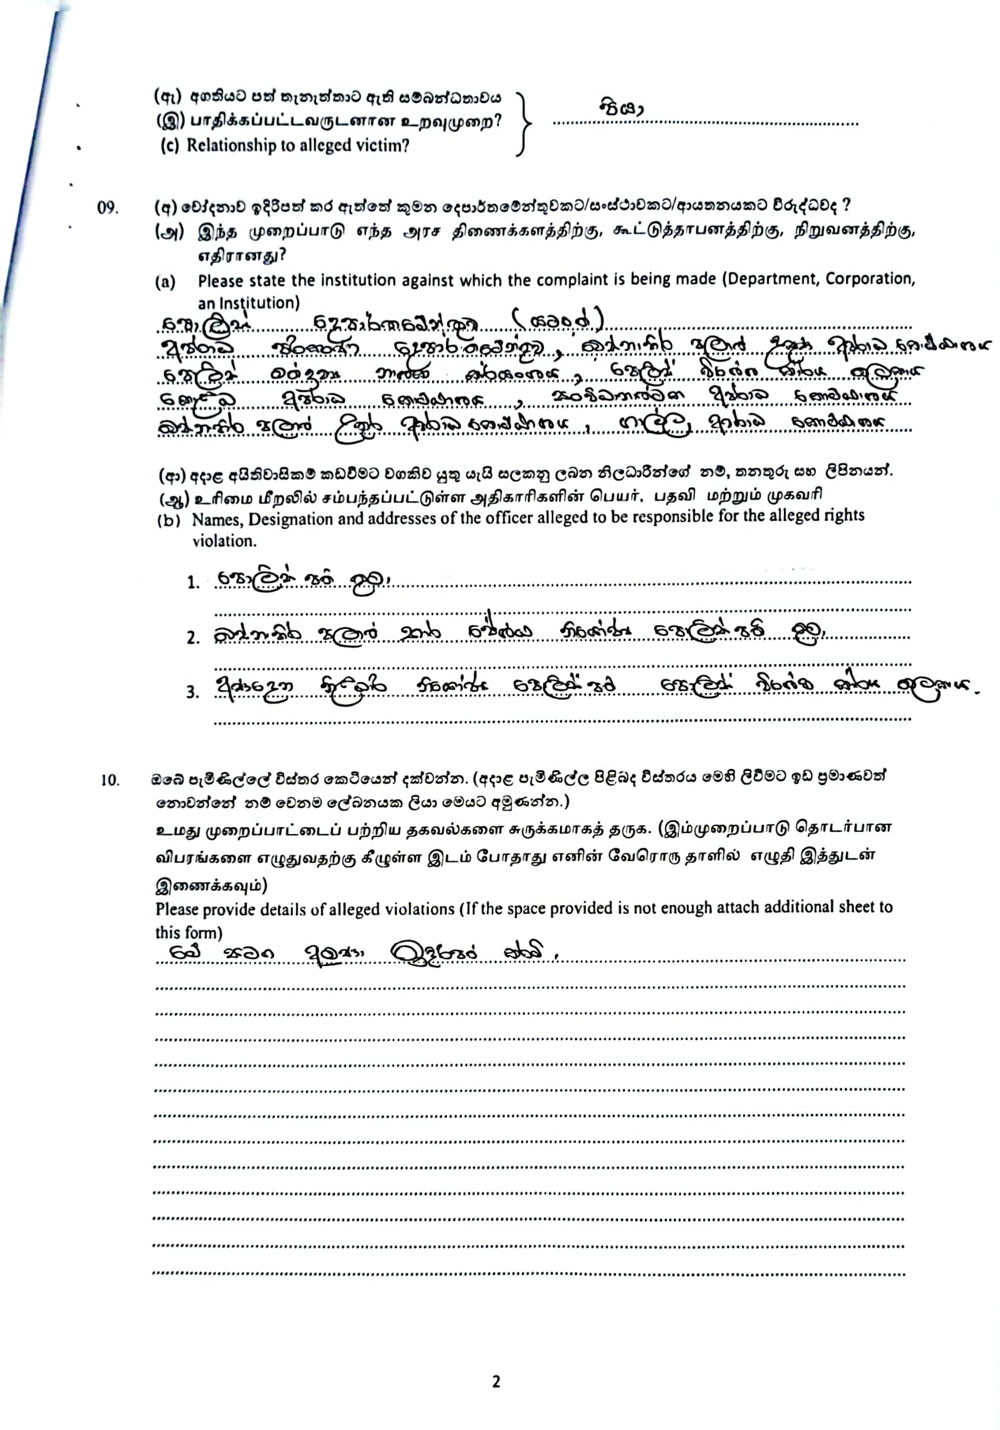 (ඇ) අගතියට පත් තැනැත්තාට ඇති සම්බන්ධතාවය
(இ) பாதிக்கப்பட்டவருடனான உறவுமுறை?
(c) Relationship to alleged victim?
පියා
09. (අ) චෝදනාව ඉදිරිපත් කර ඇත්තේ කුමන දෙපාර්තමේන්තුවකට/සංස්ථාවකට/ආයතනයකට විරුද්ධවද ?
(அ) இந்த முறைப்பாடு எந்த அரச திணைக்களத்திற்கு, கூட்டுத்தாபனத்திற்கு, நிறுவனத்திற்கு,
எதிரானது?
(a) Please state the institution against which the complaint is being made (Department, Corporation,
an Institution)
පොලිස් දෙපාර්තමේන්තුව
අපරාධ පරීක්ෂණ දෙපාර්තමේන්තුව, බස්නාහිර පළාත් දකුණ අපරාධ කොට්ඨාසය
පොලිස් විශේෂ කාර්ය බලකාය
කොළඹ අපරාධ කොට්ඨාසය, සංවිධානාත්මක අපරාධ කොට්ඨාසය
බස්නාහිර පළාත් උතුර අපරාධ කොට්ඨාසය, ගාල්ල අපරාධ කොට්ඨාසය
(ආ) අදාළ අයිතිවාසිකම් කඩවීමට වගකිව යුතු යැයි සලකනු ලබන නිලධාරීන්ගේ නම්, තනතුරු සහ ලිපිනයන්.
(ஆ) உரிமை மீறலில் சம்பந்தப்பட்டுள்ள அதிகாரிகளின் பெயர், பதவி மற்றும் முகவரி
(b) Names, Designation and addresses of the officer alleged to be responsible for the alleged rights
violation.
1. පොලිස්පති තුමා,
2. බස්නාහිර පළාත් භාර ජේෂ්ඨ නියෝජ්‍ය පොලිස්පති තුමා,
3. අණදෙන නිලධාරී නියෝජ්‍ය පොලිස්පති පොලිස් විශේෂ කාර්ය බලකාය.
10. ඔබේ පැමිණිල්ලේ විස්තර කෙටියෙන් දක්වන්න. (අදාළ පැමිණිල්ල පිළිබද විස්තරය මෙහි ලිවීමට ඉඩ ප්‍රමාණවත්
නොවන්නේ නම් වෙනම ලේඛනයක ලියා මෙයට අමුණන්න.)
உமது முறைப்பாட்டைப் பற்றிய தகவல்களை சுருக்கமாகத் தருக. (இம்முறைப்பாடு தொடர்பான
விபரங்களை எழுதுவதற்கு கீழுள்ள இடம் போதாது எனின் வேரொரு தாளில் எழுதி இத்துடன்
இணைக்கவும்)
Please provide details of alleged violations (If the space provided is not enough attach additional sheet to
this form)
මේ සමග අමුණා ඉදිරිපත් කරමි.
2